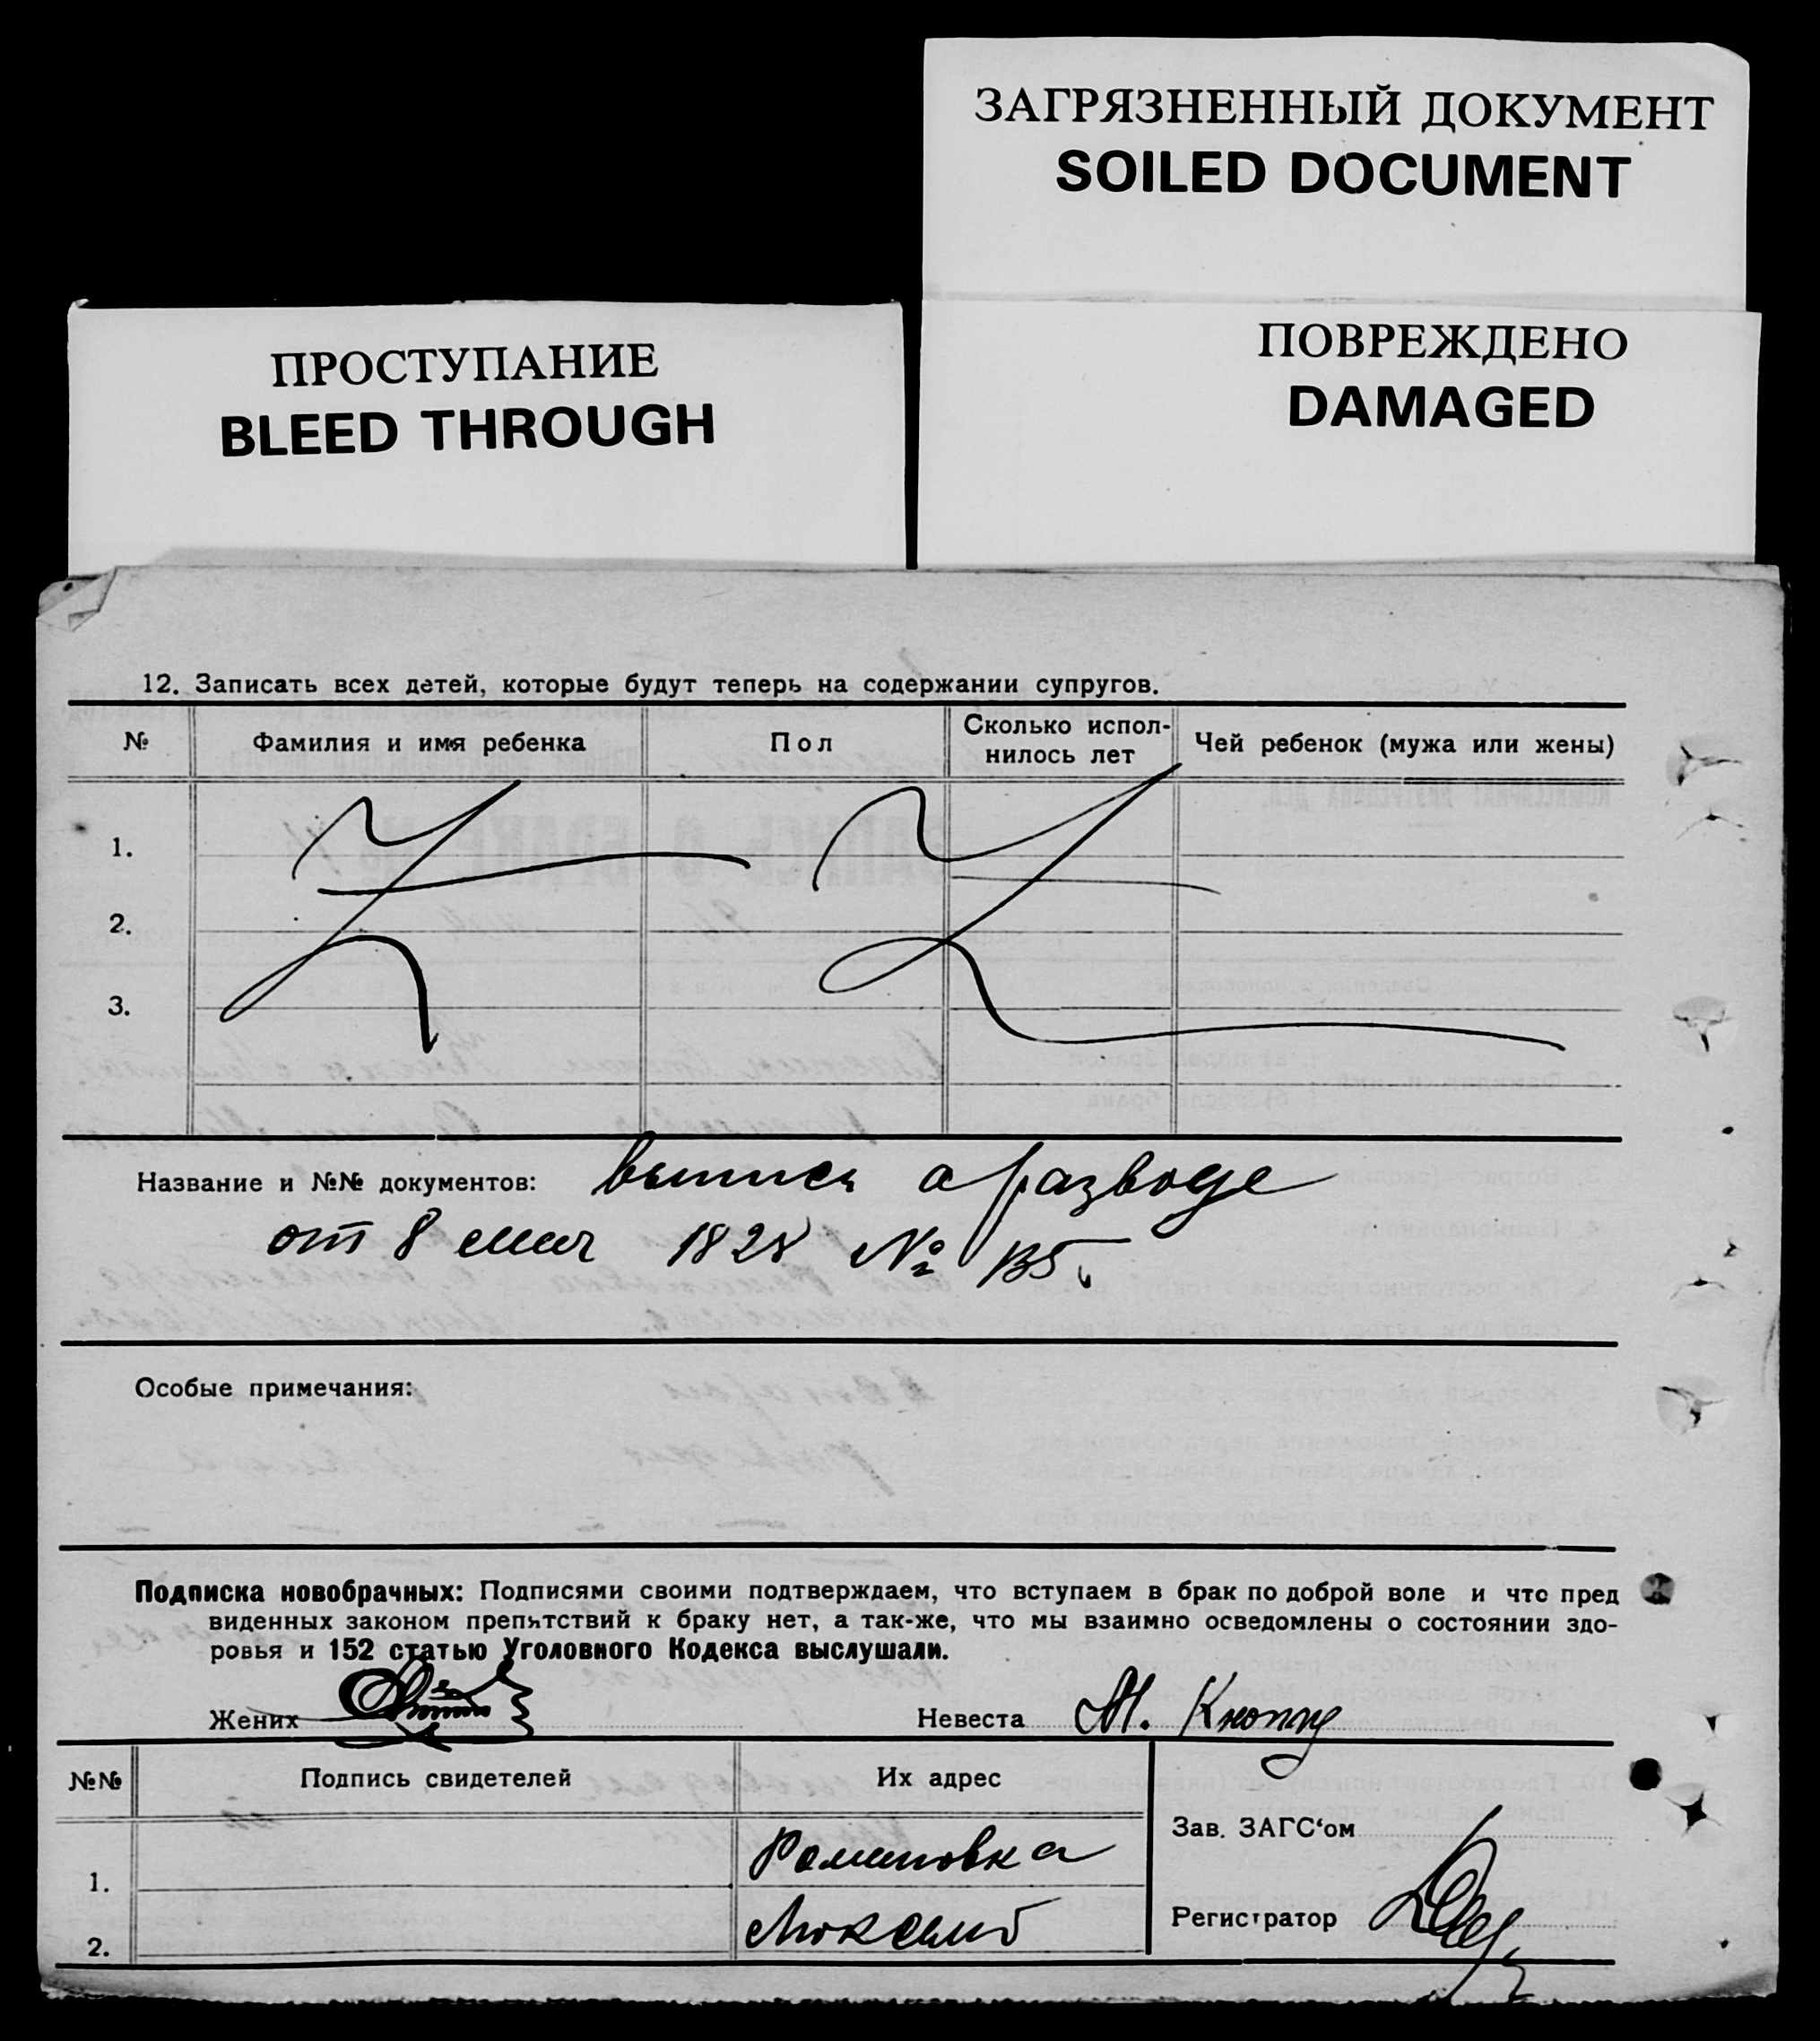 ЗАГРЯЗНЕННЫЙ ДОКУМЕНТ
SOILED DOCUMENT
ПРОСТУПАНИЕ
BLEED THROUGH
ПОВРЕЖДЕНО
DAMAGED
12. Записать всех детей, которые будут теперь на содержании супругов.
№ Фамилия и имя ребенка Пол Сколько испол-нилось лет Чей ребенок (мужа или жены)
1.
2.
3.
Название и №№ документов: выпись о разводе
от 8 1928 №
Особые примечания:
Подписка новобрачных: Подписями своими подтверждаем, что вступаем в брак по доброй воле и что пред
виденных законом препятствий к браку нет, а так-же, что мы взаимно осведомлены о состоянии здо-
ровья и 152 статью Уголовного Кодекса выслушали.
Жених Невеста М.
№№ Подпись свидетелей Их адрес
Зав. ЗАГС'ом
1. Романовка
Регистратор
2.